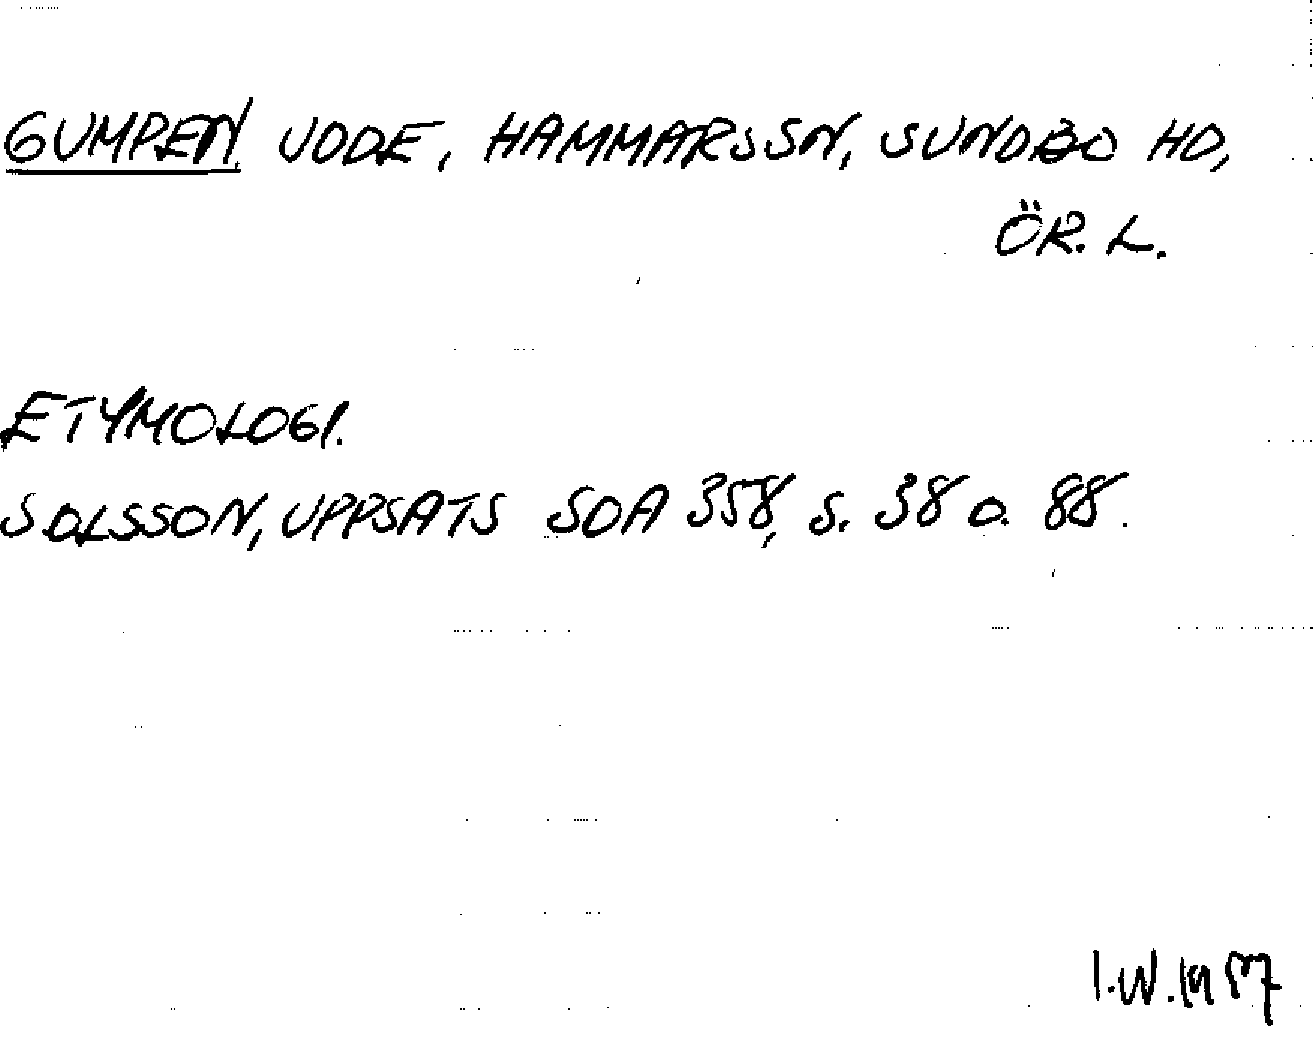 GUMPEN, UDDE, HAMMARS SN, SUNDBO HD,
ÖR. L.
ETYMOLOGI.
S OLSSON, UPPSATS SOA 358, S. 38 O. 88.
I.W. 1987